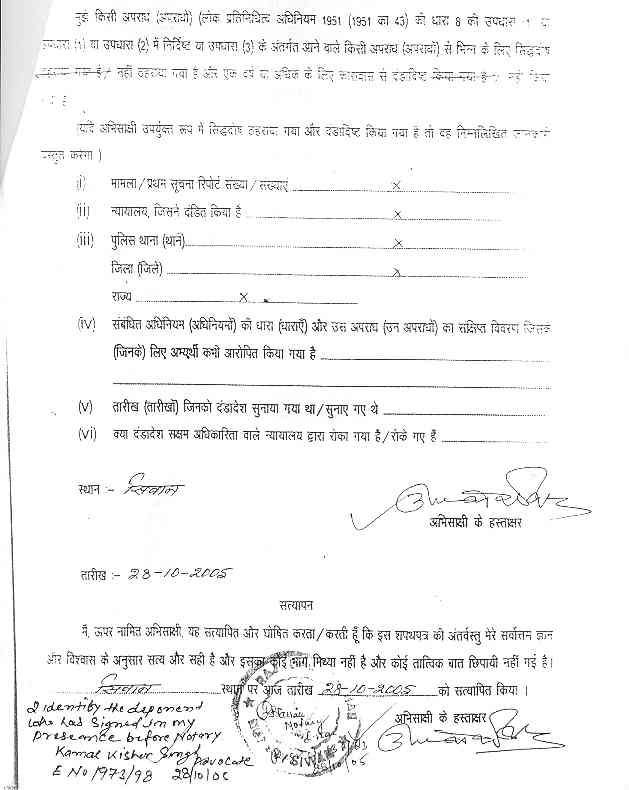 मुझे किसी अपराध (अपराधों) (लोक प्रतिनिधित्व अधिनियम 1951 (1951 का 43) की धारा 8 की उपधारा
उपधारा (1) या उपधारा (2) में निर्दिष्ट या उपधारा (3) के अंतर्गत आने वाले किसी अपराध (अपराधों) से भिन्न के लिए सिद्धदोष
ठहराया गया है / नहीं ठहराया गया है और एक वर्ष या अधिक के लिए कारावास से दंडादिष्ट किया गया है
है
(यदि अभिसाक्षी उपर्युक्त रूप में सिद्धदोष ठहराया गया और दंडादिष्ट किया गया है तो वह निम्नलिखित जानकारी
प्रस्तुत करेगा )
(i) मामला / प्रथम सूचना रिपोर्ट संख्या / संख्याएं X
(ii) न्यायालय, जिसने दंडित किया है X
(iii) पुलिस थाना (थाने) X
जिला (जिले) X
राज्य X
(iv) संबंधित अधिनियम (अधिनियमों) की धारा (धाराएँ) और उस अपराध (उन अपराधों) का संक्षिप्त विवरण जिसके
(जिनके) लिए अभ्यर्थी कभी आरोपित किया गया है
(v) तारीख (तारीखों) जिनको दंडादेश सुनाया गया था / सुनाए गए थे
(vi) क्या दंडादेश सक्षम अधिकारिता वाले न्यायालय द्वारा रोका गया है / रोके गए हैं
स्थान :- सिवान
अभिसाक्षी के हस्ताक्षर
तारीख :- 28-10-2005
सत्यापन
मैं, ऊपर नामित अभिसाक्षी, यह सत्यापित और घोषित करता / करती हूँ कि इस शपथपत्र की अंतर्वस्तु मेरे सर्वोत्तम ज्ञान
और विश्वास के अनुसार सत्य और सही है और इसका कोई भाग मिथ्या नहीं है और कोई तात्विक बात छिपायी नहीं गई है।
सिवान स्थान पर आज तारीख 28-10-2005 को सत्यापित किया ।
अभिसाक्षी के हस्ताक्षर
I identify the deponent
who has signed in my
presence before Notary
Kamal Kishor Singh Advocate
E No 1973/98 28/10/05
Notary
SIWAN